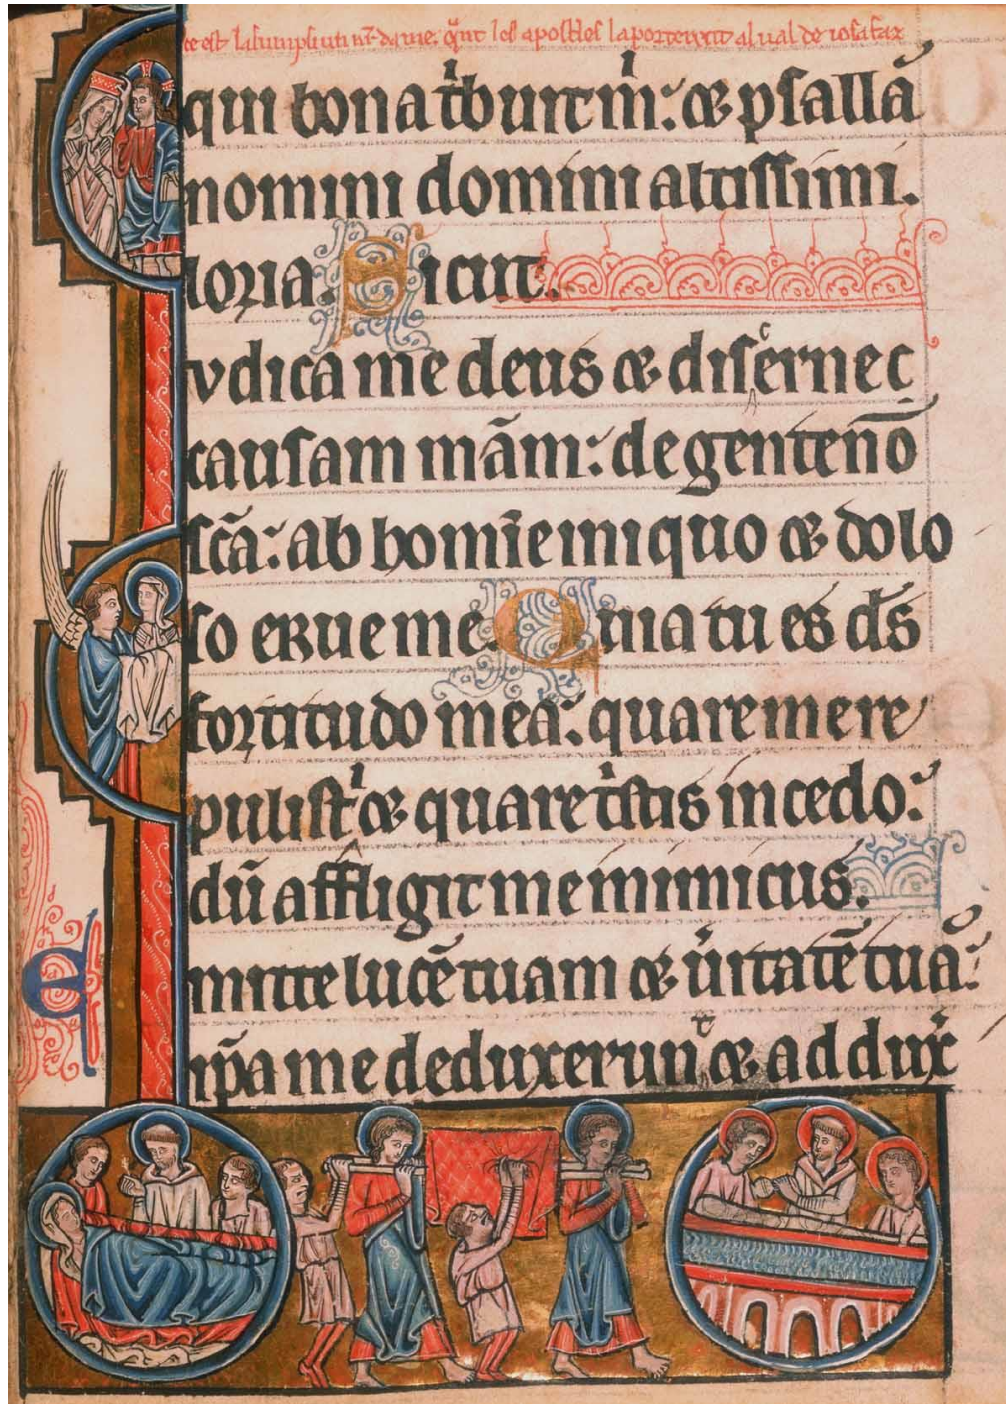 ce est lasumpsiun nr̄ dame; q̄nt les apostles la porterent al val de iosafax
qui bona tͥbuit mͥ: ⁊ psallā
nomini domini altissimi.
loria. Sicut.
vdica me deus ⁊ discerne c
causam mām: de gente nō
sc̄a: ab homīe iniquo ⁊ dolo
so erue me. Quia tu es d̄s
fortitudo mea: quare me re
pulistͥ ⁊ quare tͥstis incedo:
dū affligit me inimicus.
E mitte lucē tuam ⁊ uͥitatē tuā:
ip̄a me deduxerunt ⁊ adduxͬ